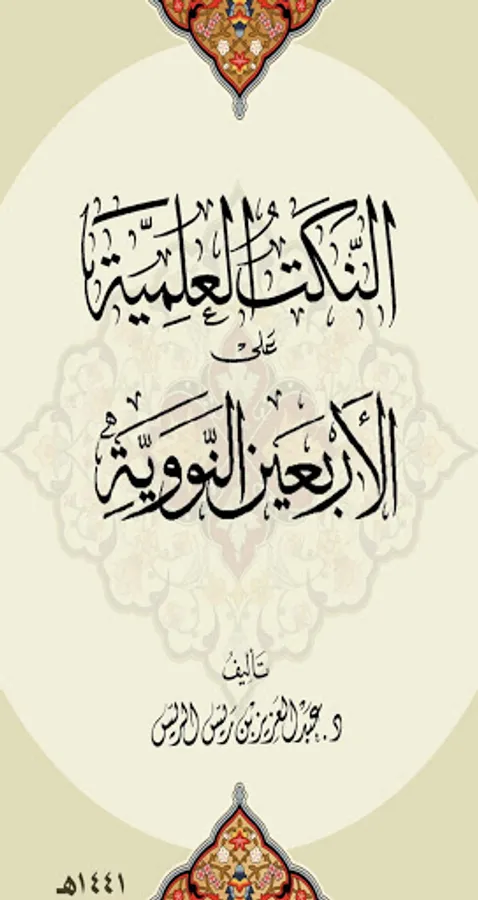 النُّكَتُ العِلْمِيَّة
عَلى
الأَرْبَعِين النَّوَوِيَّة
تَأليفُ
د. عَبْدُ العَزِيز بن رَيّس الرَيّس
١٤٤١هـ